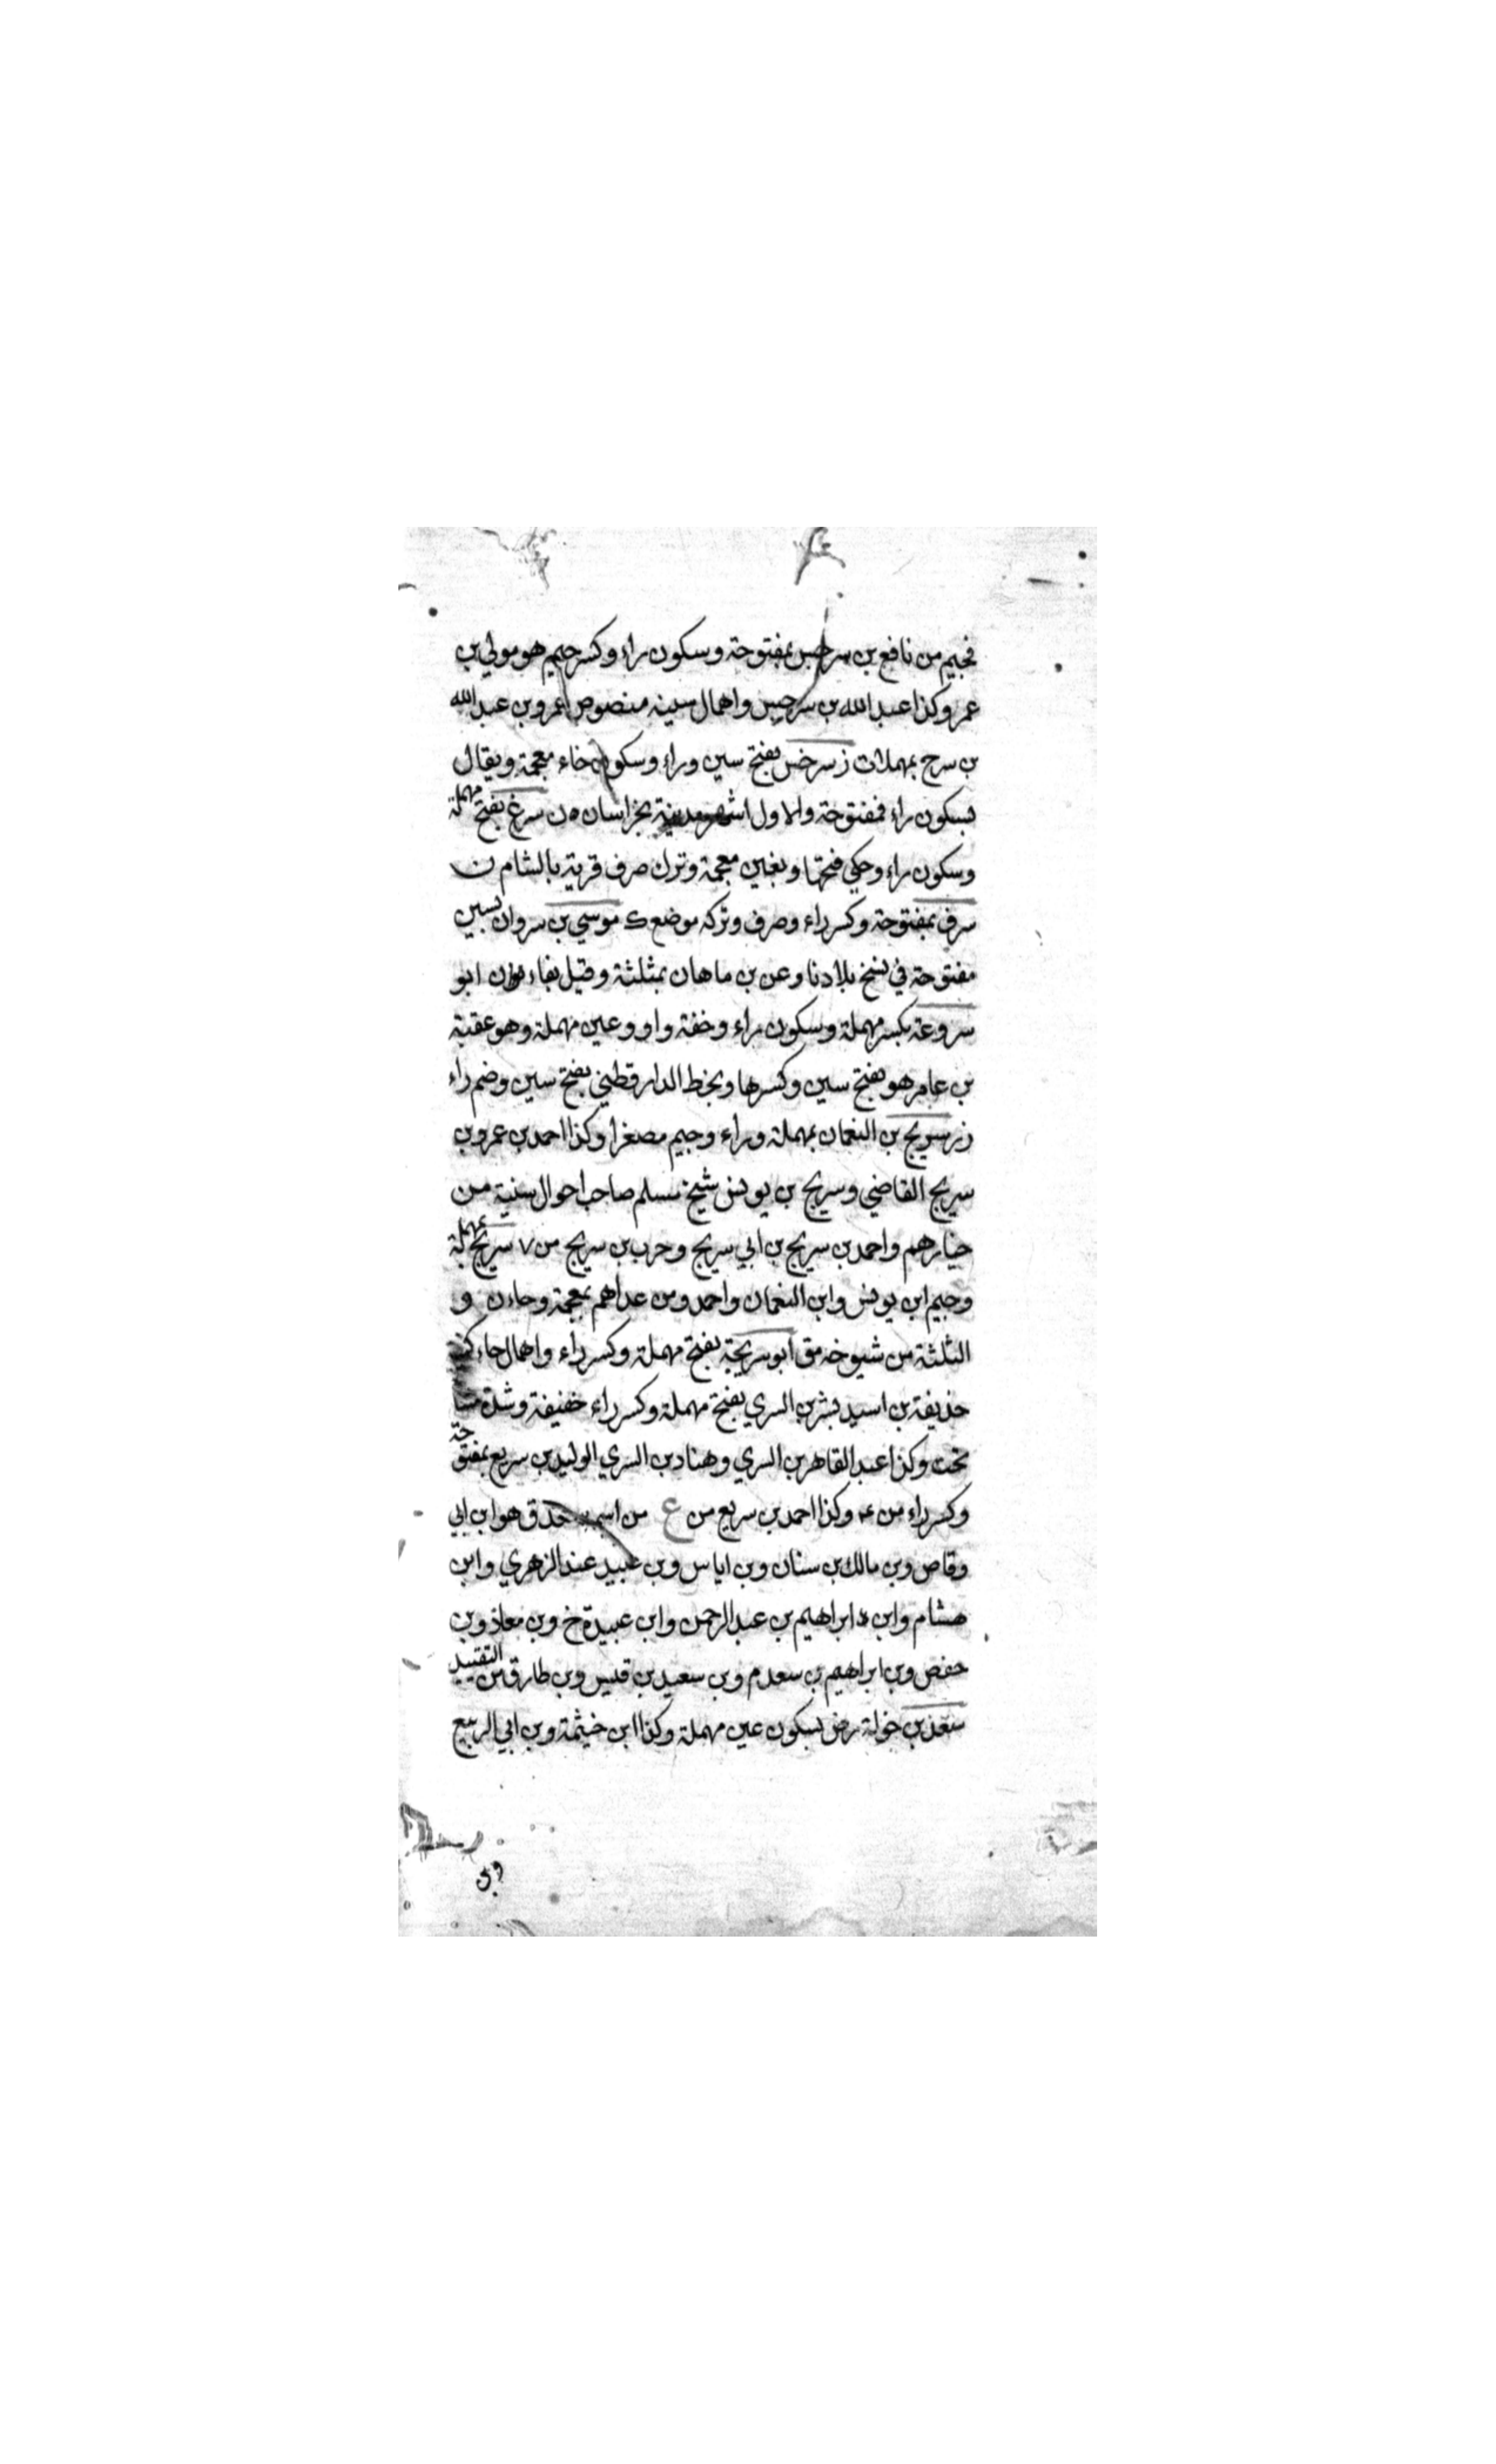 فجيم من نافع بن سرجس بمفتوحة وسكون راء وكسر جيم هو مولي بن
عمر وكذا عبد الله بن سرجس واهمال سينه منصوص عمرو بن عبد الله
بن سرح بمهملات ز سرخس بفتح سين وراء وسكون خاء معجمة ويقال
بسكون راء فمفتوحة والاول اشهر مدينة بخراسان ن سرغ بفتح مهملة
وسكون راء وحكي فتحها وبغين معجمة وترك صرف قرية بالشام ن
سرف بمفتوحة وكسر راء وصرف وتركه موضع ك موسي بن سروان بسين
مفتوحة في نسخ بلادنا وعن بن ماهان بمثلثة وقيل بفاء ن ابو
سروعة بكسر مهملة وسكون راء وخفة واو وعين مهملة وهو عقبة
بن عامر هو بفتح سين وكسرها وبخط الدارقطني بفتح سين وضم راء
ز سريج بن النعمان بمهملة وراء وجيم مصغرا وكذا احمد بن عمرو بن
سريج القاضي وسريج بن يونس شيخ مسلم صاحب احوال سنية من
خيارهم واحمد بن سريج بن ابي سريج وحرب بن سريج من ٧ سريج بمهملة
وجيم ابن يونس وابن النعمان واحمد ومن عداهم بمعجمة وحاء ن و
الثلثة من شيوخه مق ابو سريحة بفتح مهملة وكسر راء واهمال حاء
حذيفة بن اسيد بشر بن السري بفتح مهملة وكسر راء خفيفة وشدة
تحت وكذا عبد القاهر بن السري وهناد بن السري الوليد بن سريع بمفتوحة
وكسر راء من ع وكذا احمد بن سريع من ع من اسمه هو ابن ابي
وقاص وبن مالك بن سنان وبن اياس وبن عبيد عند الزهري وابن
هشام وابن ابراهيم بن عبد الرحمن وابن عبيدة خ وبن معاذ وبن
حفص وبن ابراهيم بن سعد م وبن سعيد بن قيس وبن طارق من التقييد
سعد بن خولة رض بسكون عين مهملة وكذا ابن خيثمة وبن ابي الربيع
وبن